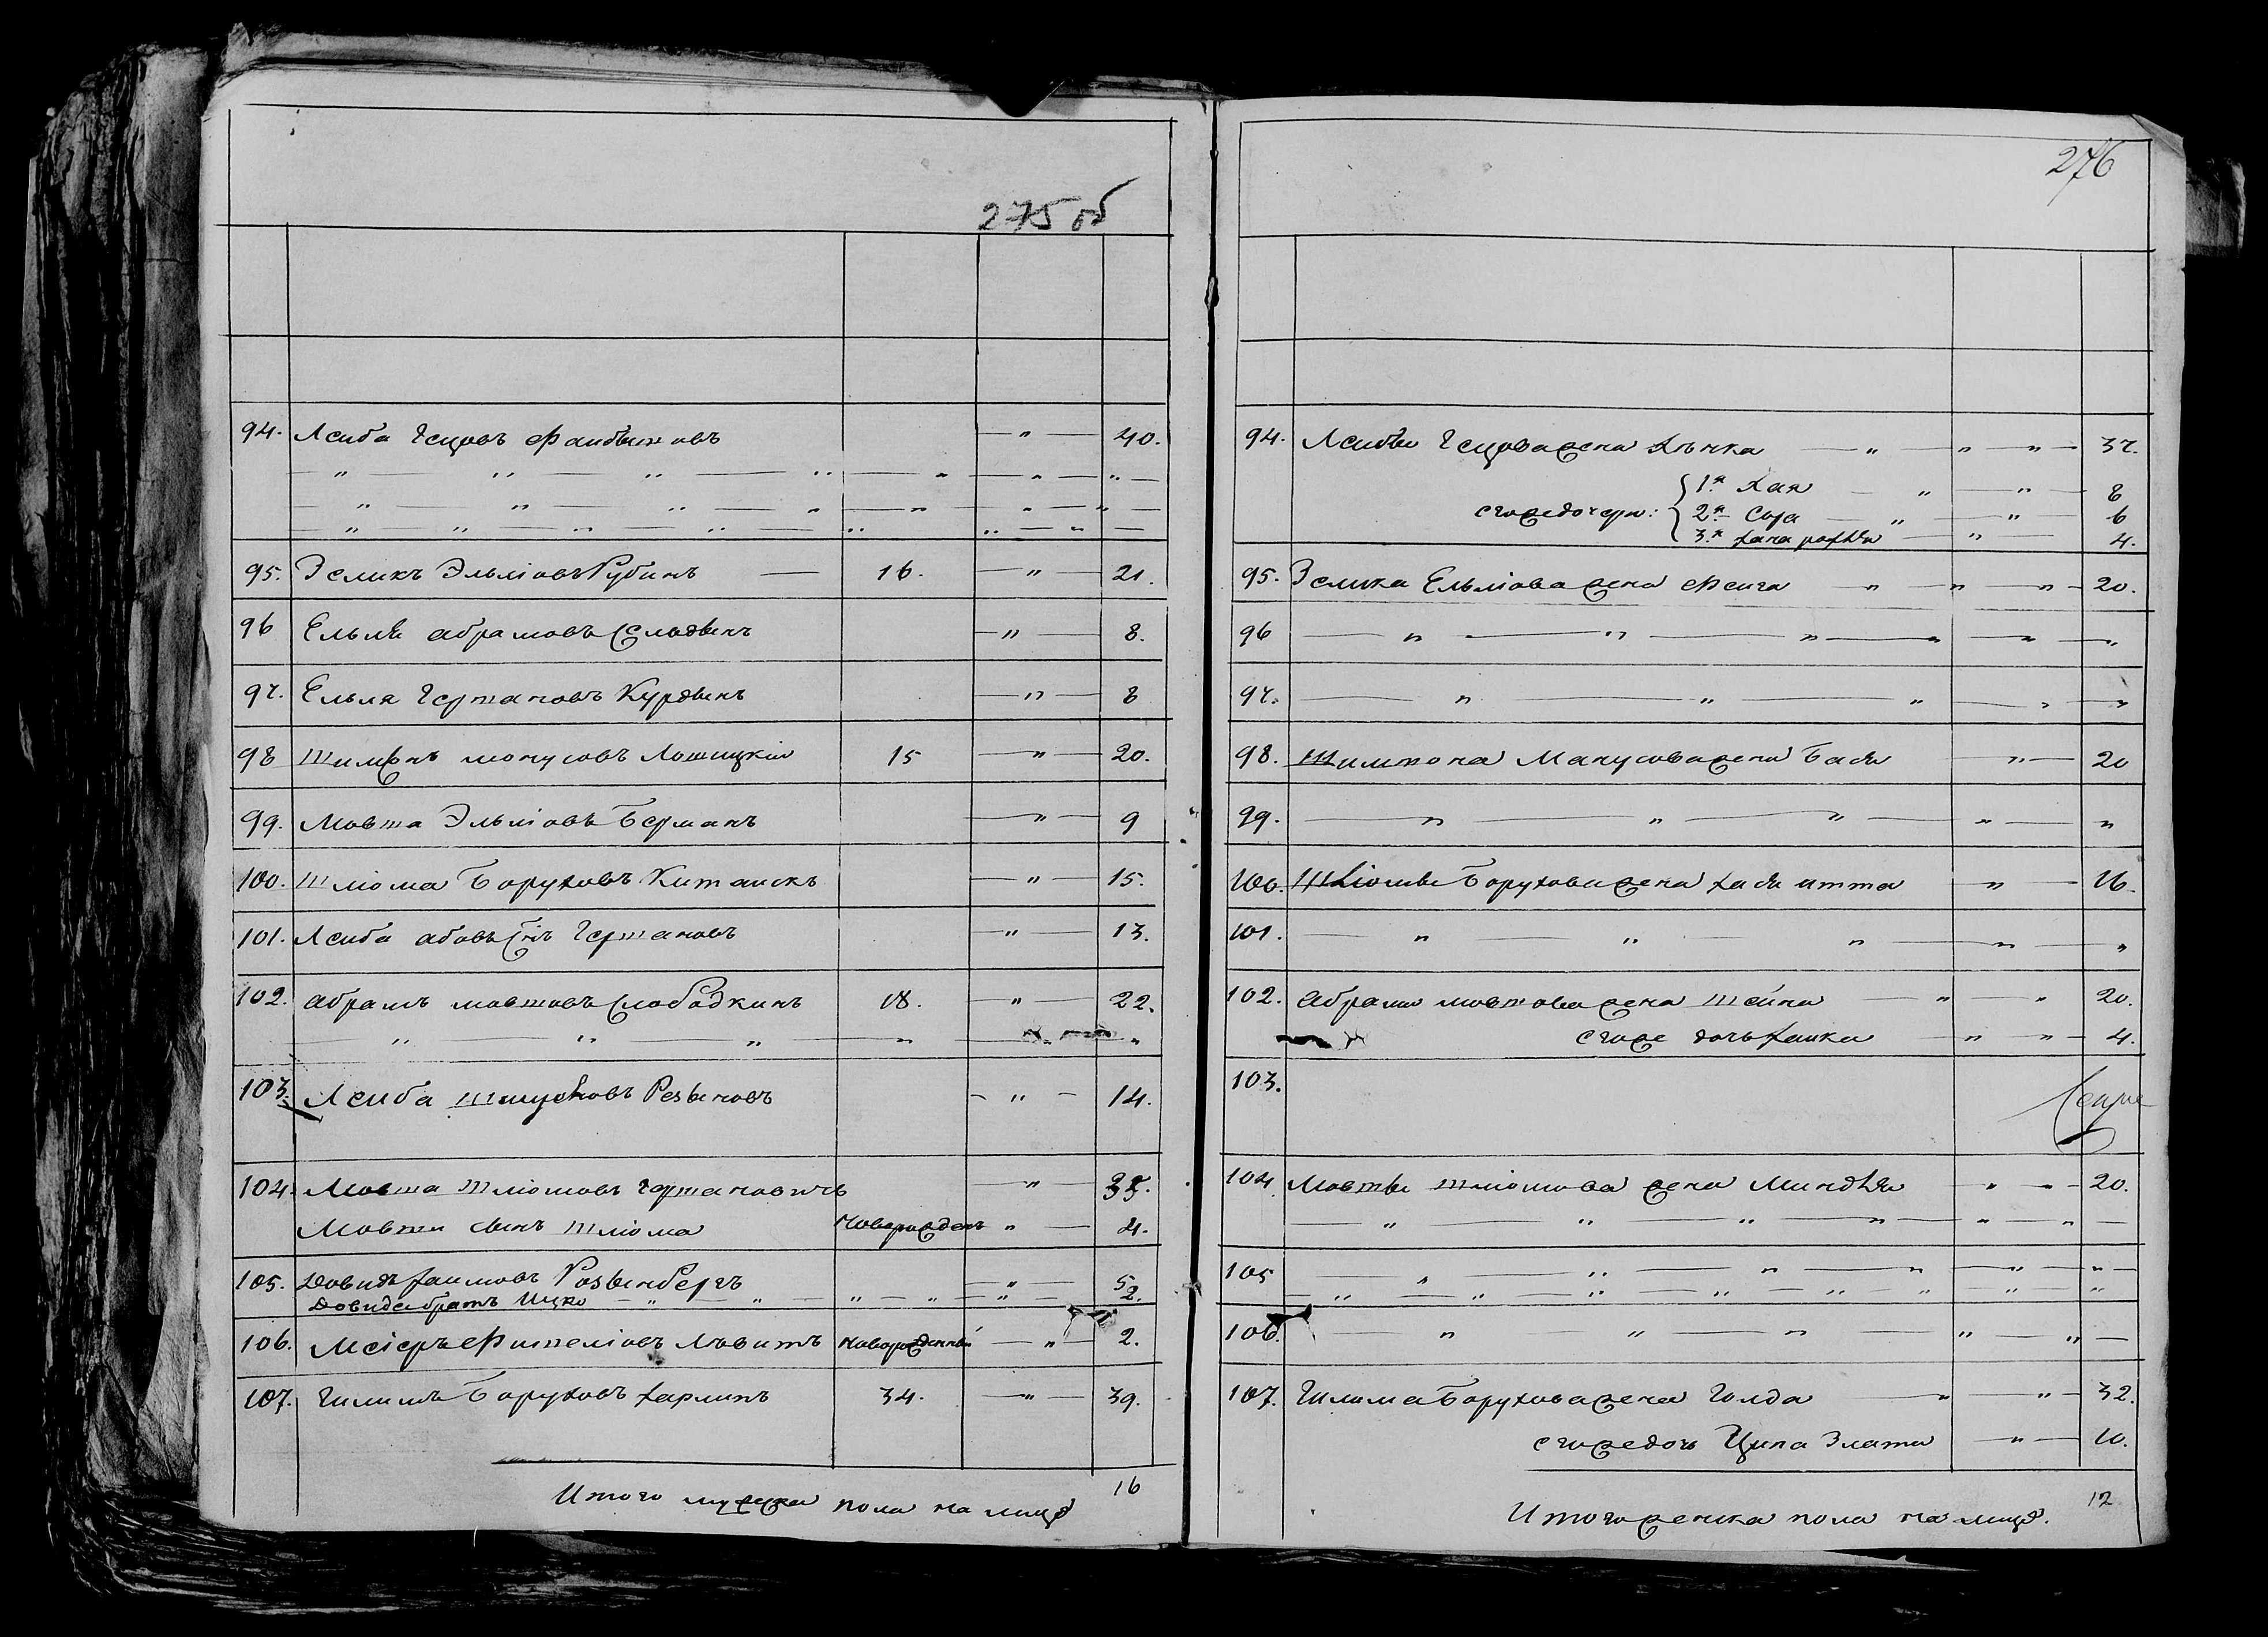 275 об
94. Лейба Гецовъ Файбышовъ — " — 40.
" " " " " " "
" " " " " " "
" " " " " " "
95. Зеликъ Эльліовъ Рубинъ — 16. — " — 21.
96 Ельля Абрамовъ — " — 8.
97. Ельля Гершановъ Курдынъ — " — 8
98 Шимонъ Монусовъ Лошицкій 15 — " — 20.
99. Мовша Эльліовъ Берманъ — " — 9
100. Шліома Боруховъ Китаикъ — " — 15.
101. Лейба Гершановъ — " — 13.
102. Абрамъ Мовшовъ Слободкинъ 18. — " — 22.
" " " " " "
103. Лейба Резыновъ — " — 14.
104. Мовша Шліомовъ Гершановичъ — " — 35.
Мовши сынъ Шліома Новорожденъ " — 4.
105. Довидъ Хаимовъ Розынбергъ — " — 5
Довида братъ Ицко — " — " — " — " — " — 2.
106. Меіеръ Фишеліовъ Лѣвитъ новорожденный — " — 2.
107. Гилимъ Боруховъ Карлинъ 34. — " — 39.
Итого мужска пола на лицо 16
276
94. Лейбы Гецова жена Хѣнка — " — " — " — 37.
его же дочери: 1.я Хая — " — " — 8
2.я Сора — " — " — 6
3.я Хана рохля — " — 4.
95. Зелика Ельліова жена Фейга " " " — 20.
96 — " — " — " — " — " — "
97. — " — " — " — " — "
98. Шимона Манусова жена Бася — " — 20
99. — " — " — " — " — "
100. Шліомы Борухова жена Хася итта — " — 16.
101. — " — " — " — " — "
102. Абрама Мовшова жена Шейна — " — " 20.
его же дочь Хашка — " — " — 4.
103.
104 Мовши Шліомова жена Миндля " " — 20.
" " " " " " —
105 — " — " — " — " — " — " —
" " " " " " " "
106. — " — " — " — " — " —
107. Гилима Борухова жена Голда — " — " — 32.
его же дочь Ципа Злата — " — 10.
Итого женска пола на лицо. 12